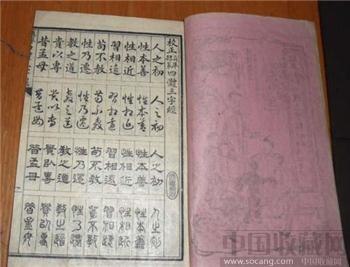 校正四體三字經
人之初 人之初 人之初 人之初
性本善 性本善 性本善 性本善
性相近 性相近 性相近 性相近
習相遠 習相遠 習相遠 習相遠
苟不教 苟不教 苟不教 苟不教
性乃遷 性乃遷 性乃遷 性乃遷
教之道 教之道 教之道 教之道
貴以專 貴以專 貴以專 貴以專
昔孟母 昔孟母 昔孟母 昔孟母
中国收藏网
www.socang.com